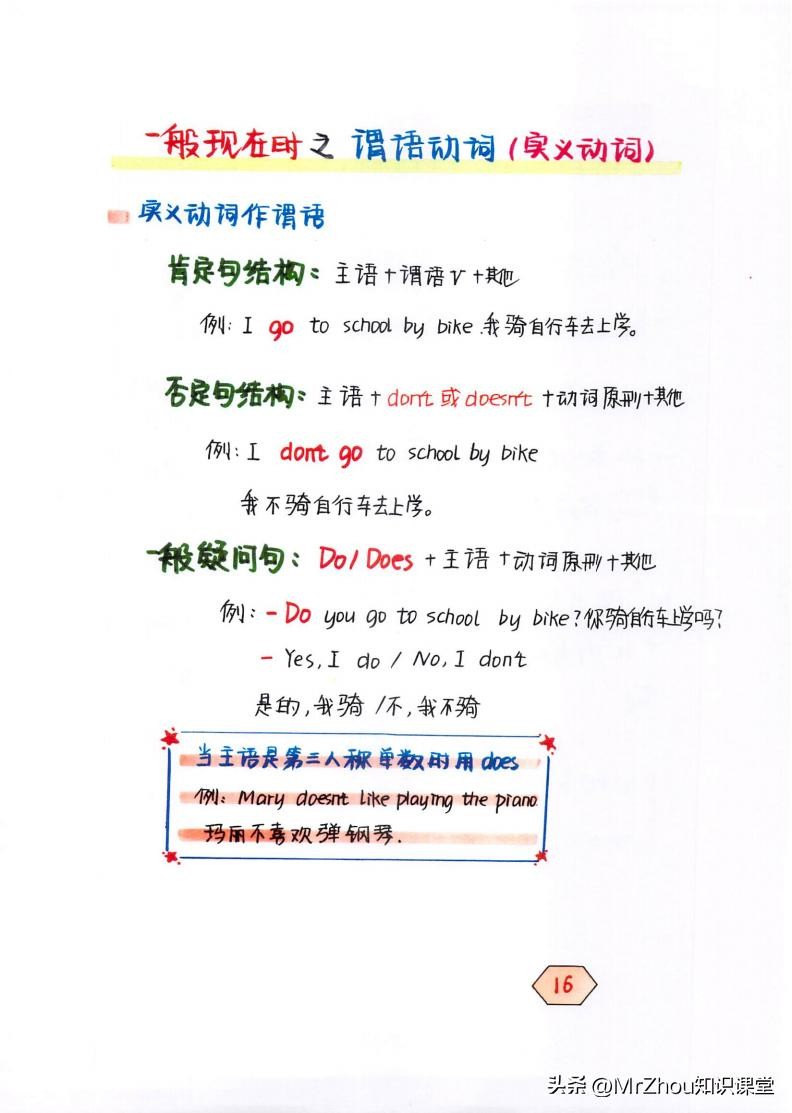 一般现在时之 谓语动词(实义动词)
实义动词作谓语
肯定句结构: 主语+谓语V+其他
例: I go to school by bike.我骑自行车去上学。
否定句结构: 主语+don't或doesn't+动词原形+其他
例: I don't go to school by bike
我不骑自行车去上学。
一般疑问句: Do/Does+主语+动词原形+其他
例: -Do you go to school by bike?你骑自行车上学吗?
- Yes, I do / No, I don't
是的,我骑 /不,我不骑
当主语是第三人称单数时用does
例: Mary doesn't like playing the piano.
玛丽不喜欢弹钢琴.
16
头条 @MrZhou知识课堂